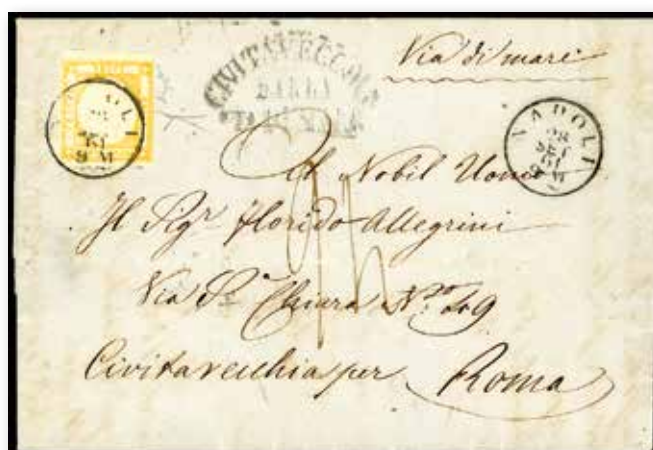 Via di mare
CIVITAVECCHIA
DALLA
NAPOLI
28
SET
61
9 M
Al Nobil Uomo
Il Sigr. Florido Allegrini
Via Sa. Chiara No. 49
Civitavecchia per Roma